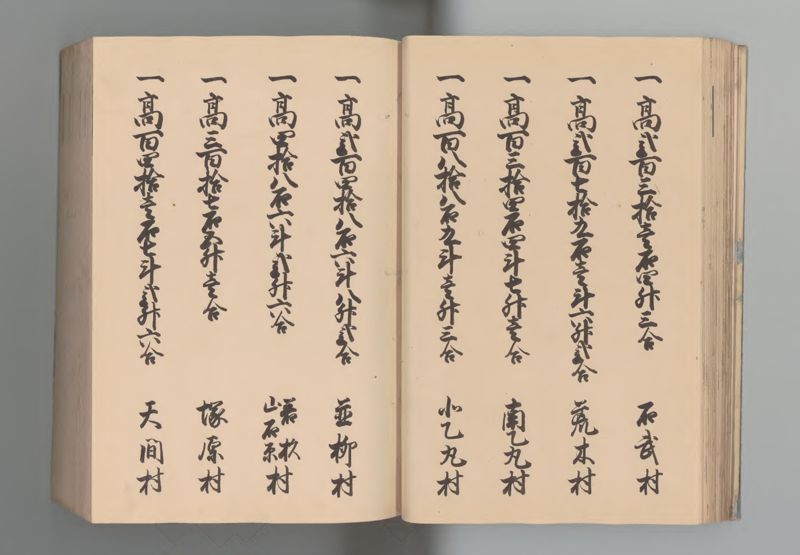 一高弐百三拾壱石四升三合 石武村
一高弐百七拾九石壱斗六升弐合 荒木村
一高百三拾四石四斗七升壱合 南乙丸村
一高百八拾八石九斗壱升三合 小乙丸村
一高弐百四拾八石六斗八升弐合 並柳村
一高四拾八石六斗弐升六合 若杉山石原村
一高三百拾七石五升壱合 塚原村
一高百四拾壱石七斗弐升六合 天間村